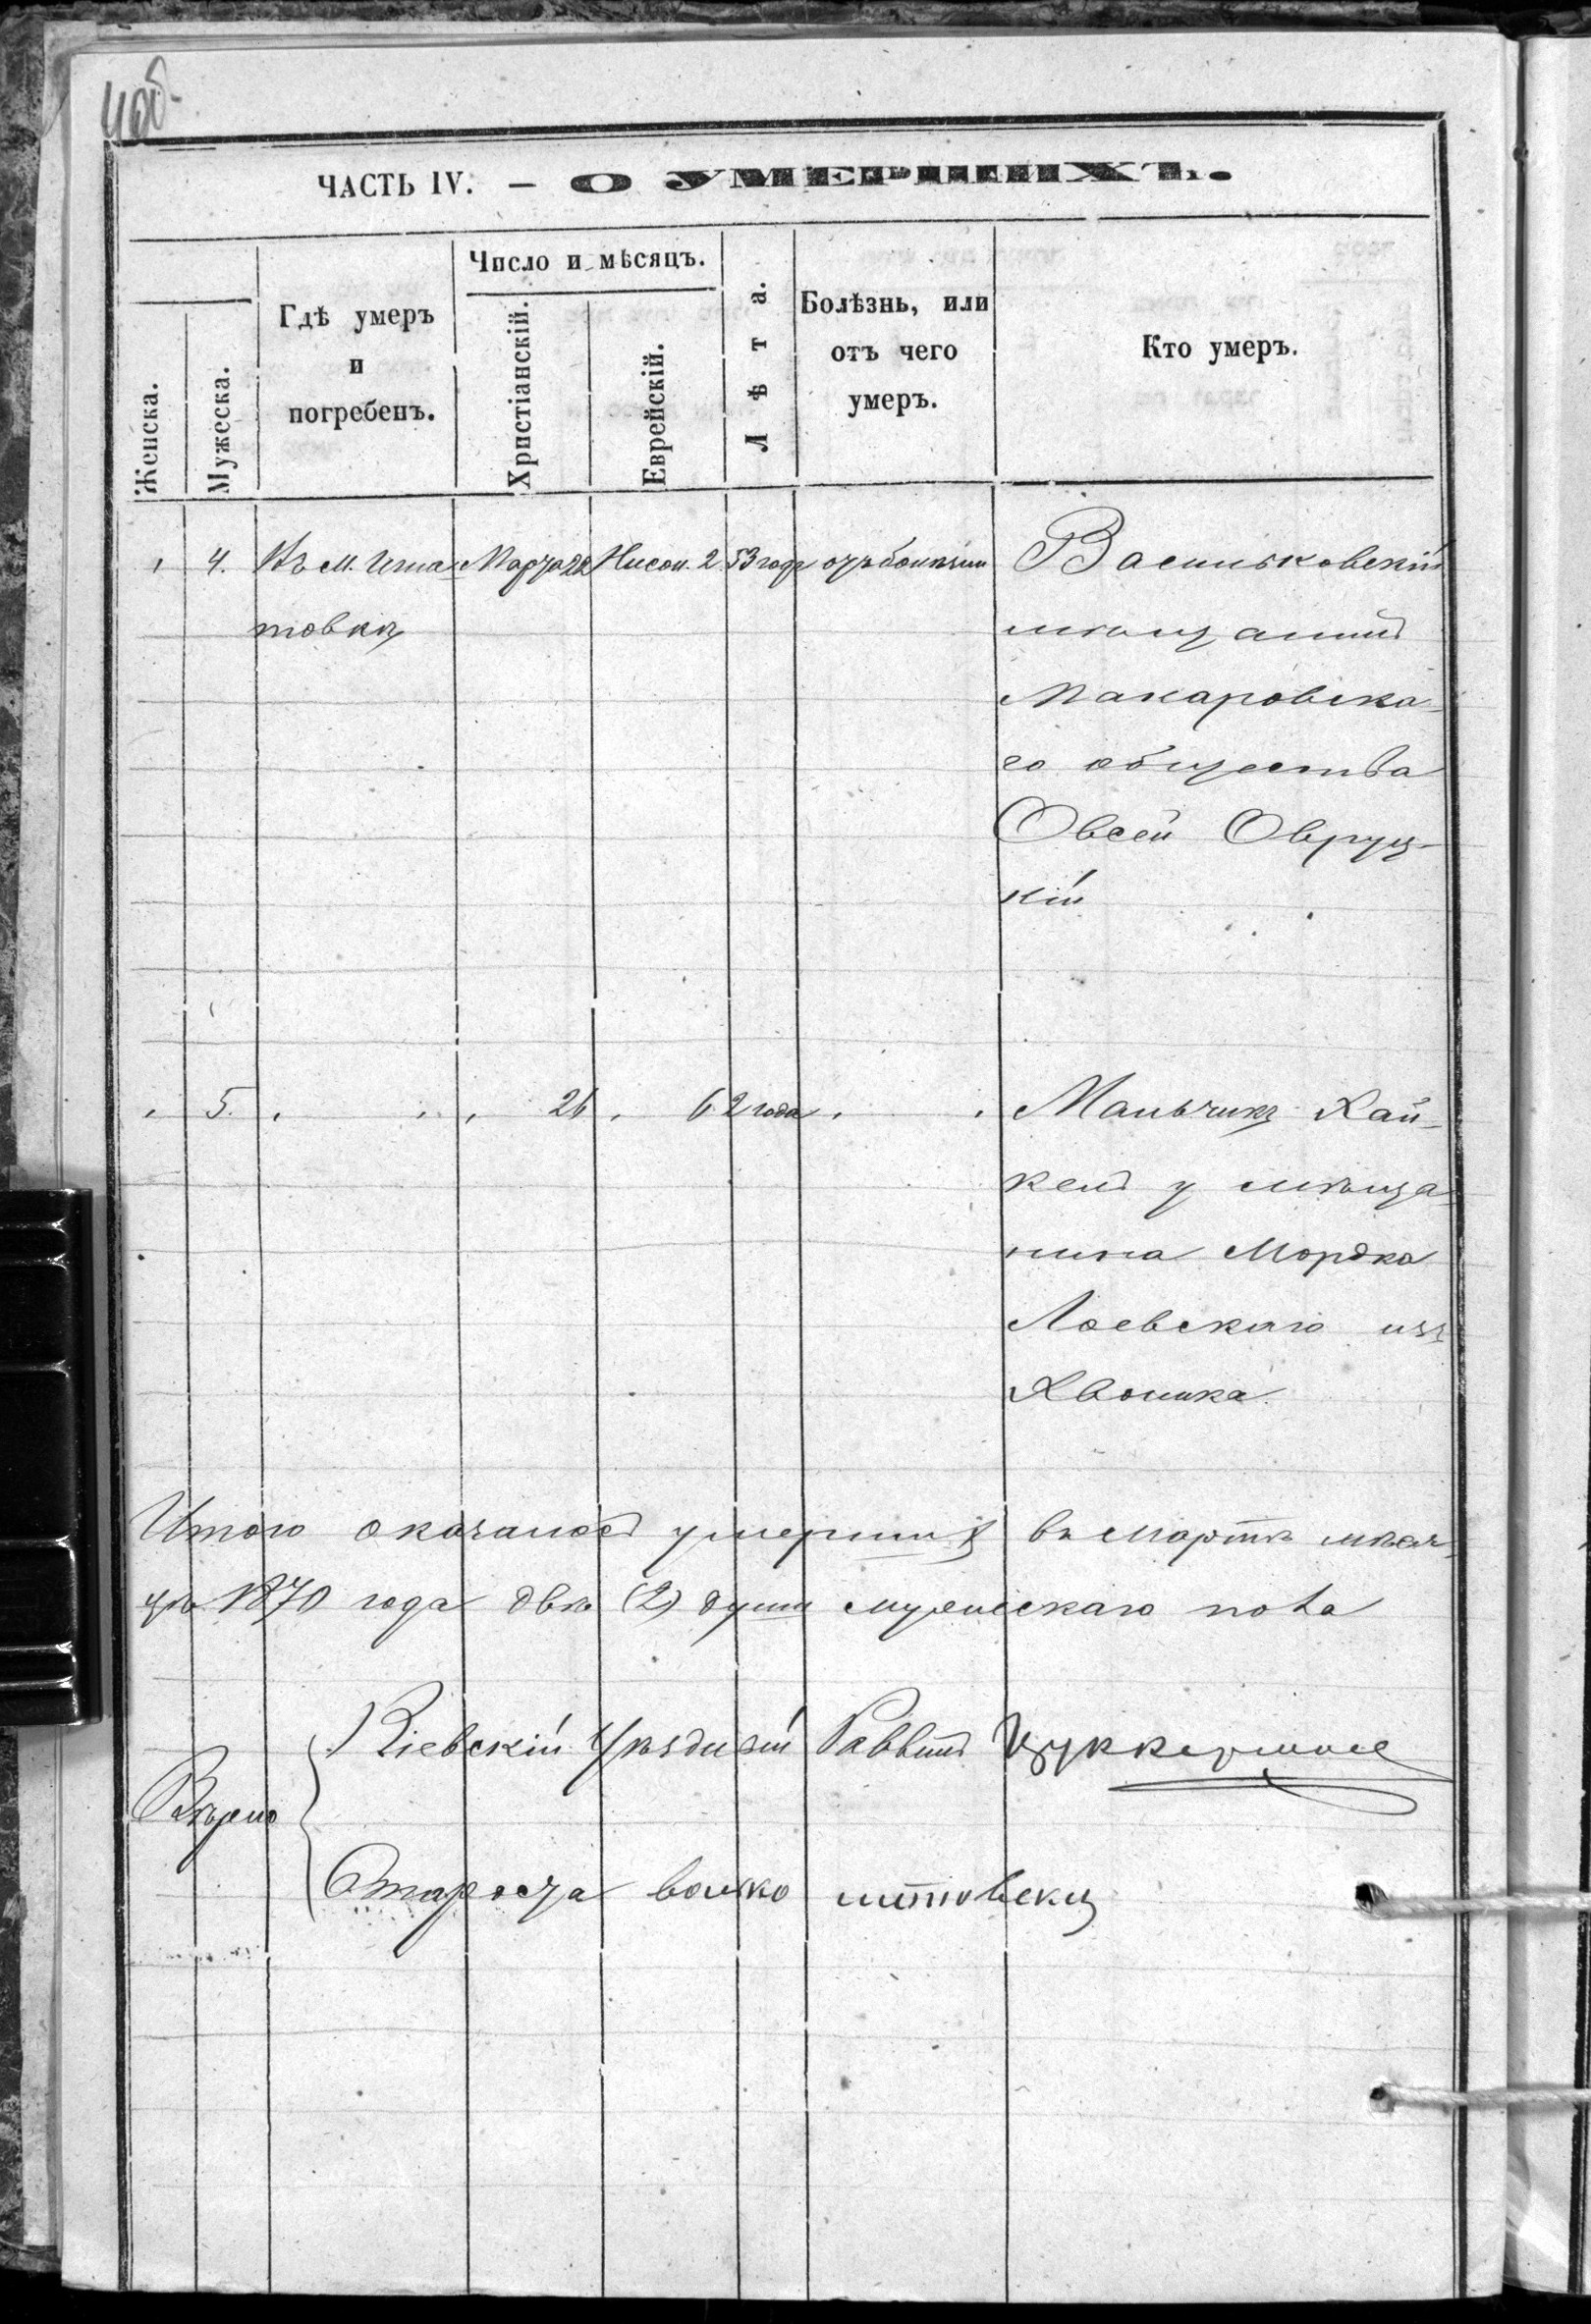 ЧАСТЬ IV. — О УМЕРШИХЪ.
Женска.
Мужеска.
Гдѣ умеръ и погребенъ.
Число и мѣсяцъ.
Христіанскій.
Еврейскій.
Лѣта.
Болѣзнь, или отъ чего умеръ.
Кто умеръ.
4. Въ М. Игна Марта 22 Нисон. 2 53 года отъ болѣзни Васильковскій
товкѣ мѣщанинъ
Макаровска-
го общества
Овсей Овруц-
кій
5. 26 6 2 года Мальчикъ Хай-
келъ у мѣща-
нина Мордка
Лоевскаго изъ
Хвоника
Итого оказалось умершихъ въ Мартѣ мѣся-
цѣ 1870 года двѣ (2) души мужескаго пола
Вѣрно
Кіевскій Уѣздный Раввинъ Цуккерман
Староста волько